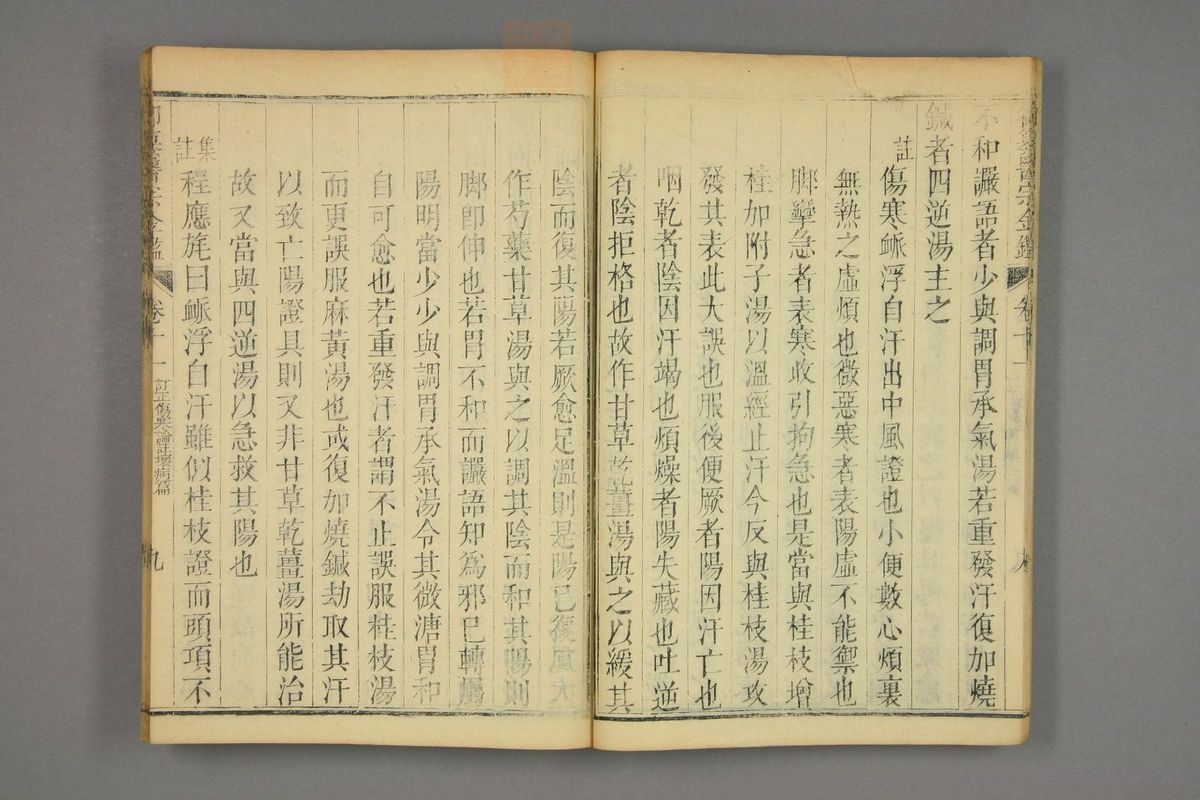 不和讝語者少與調胃承氣湯若重發汗復加燒
鍼者四逆湯主之
註
傷寒脈浮自汗出中風證也小便數心煩裏
無熱之虛煩也微惡寒者表陽虛不能禦也
脚攣急者表寒收引拘急也是當與桂枝增
桂加附子湯以溫經止汗今反與桂枝湯攻
發其表此大誤也服後便厥者陽因汗亡也
咽乾者陰因汗竭也煩燥者陽失藏也吐逆
者陰拒格也故作甘草乾薑湯與之以緩其
陰而復其陽若厥愈足溫則是陽已復宜大
作芍藥甘草湯與之以調其陰而和其陽則
脚即伸也若胃不和而讝語知為邪已轉屬
陽明當少少與調胃承氣湯令其微溏胃和
自可愈也若重發汗者謂不止誤服桂枝湯
而更誤服麻黃湯也或復加燒鍼劫取其汗
以致亡陽證具則又非甘草乾薑湯所能治
故又當與四逆湯以急救其陽也
集註
程應旄曰脈浮自汗雖似桂枝證而頭項不
醫宗金鑑 卷十一 訂正傷寒論註壞病篇 九